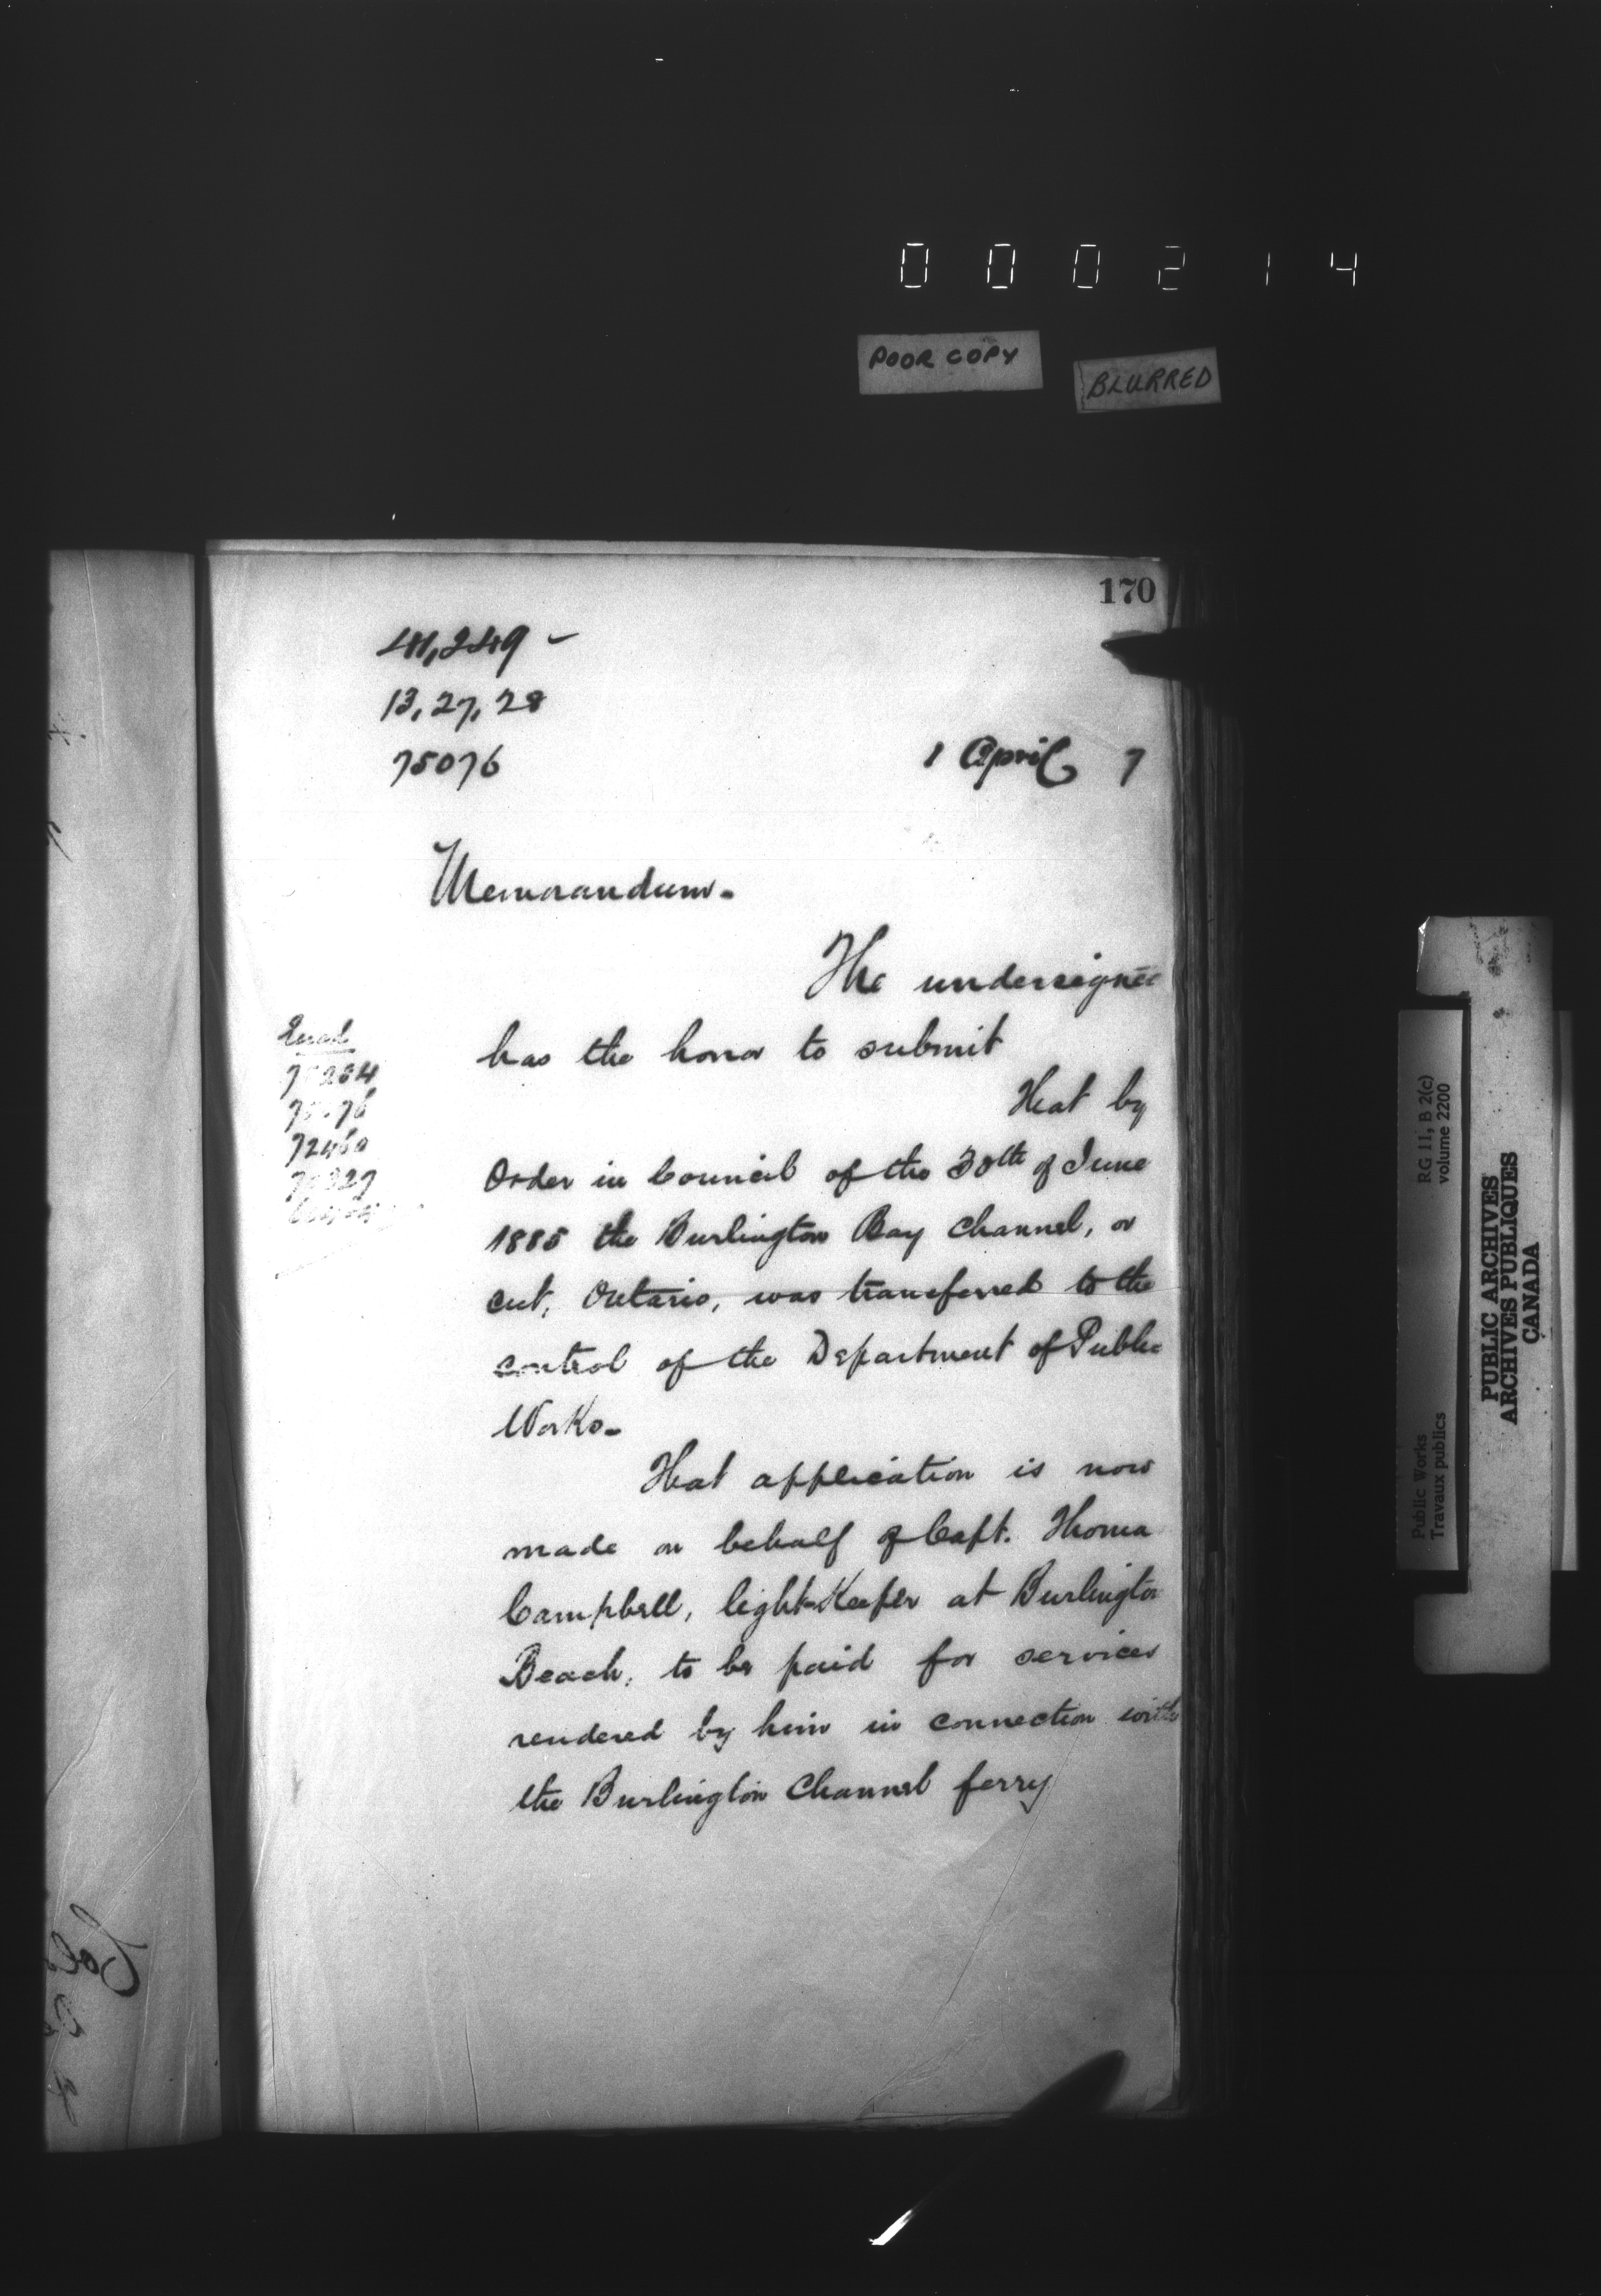 000214
POOR COPY
BLURRED
170
41,249 -
13, 27, 28
75076
1 April 7
Memorandum-
The undersigned
has the honor to submit
That by
Order in Council of the 30th of June
1885 the Burlington Bay Channel, or
cut, Ontario, was transferred to the
control of the Department of Public
Works-
That application is now
made on behalf of Capt. Thoma
Campbell, light-Keeper at Burlington
Beach, to be paid for services
rendered by him in connection with
the Burlington Channel ferry
72460
RG 11, B 2(c)
volume 2200
Public Works
Travaux publics
PUBLIC ARCHIVES
ARCHIVES PUBLIQUES
CANADA